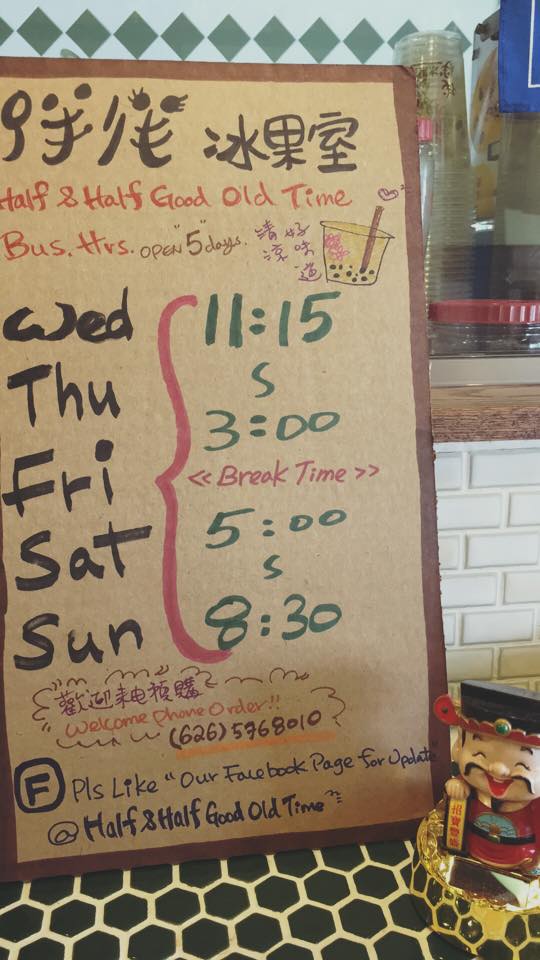 冰果室
Half & Half Good Old Time
Bus. Hrs. OPEN "5" days.
清涼
好味道
Wed
Thu
Fri
Sat
Sun
11:15
S
3:00
<< Break Time >>
5:00
S
8:30
歡迎来电預購
Welcome Phone Order!!
(626)5768010
F Pls Like "Our Facebook Page for Update"
@ Half & Half Good Old Time